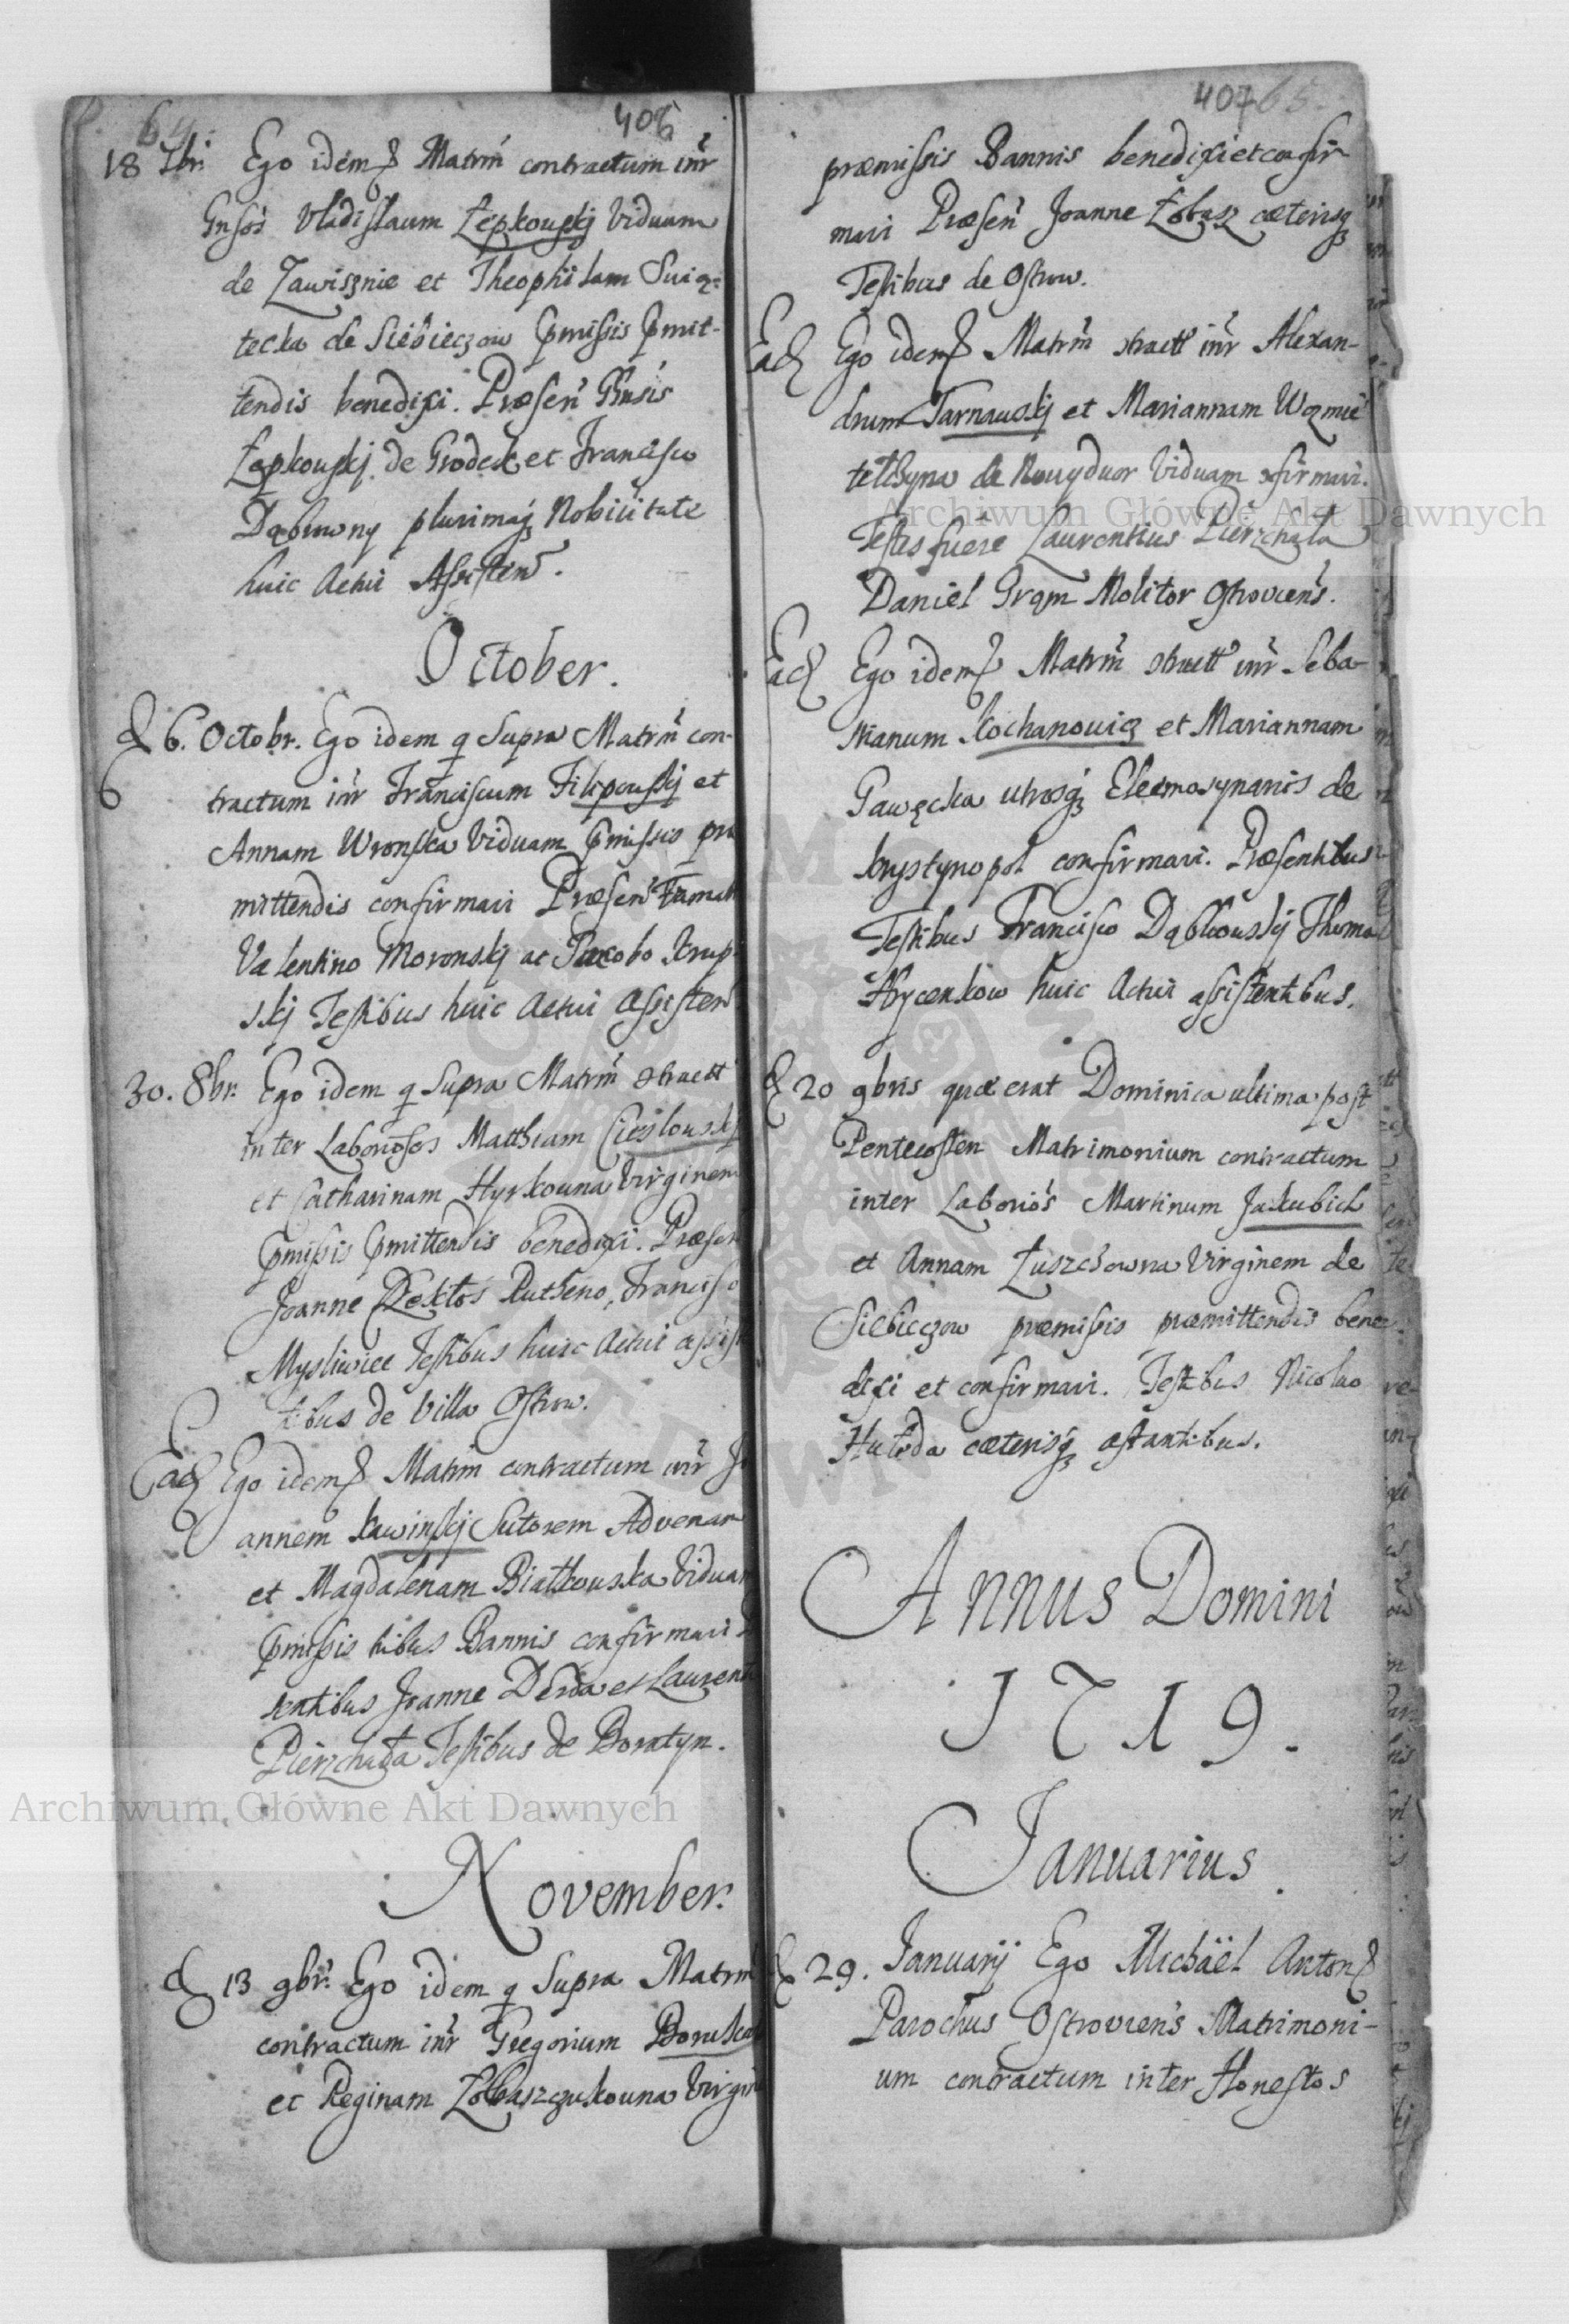 64.
406
18 7br. Ego idem qs Matrm̃ contractum inr̃
Gnsos Vladislaum Łępkouskj Viduum
de Zawisznie et Theophilam Suią-
tecka de Siebieczow pmissis pmit-
tendis benedixi. Præsen̄ Gnsis
Łępkouskj de Grodek et Francisco
Dąbrowny plurimaq Nobilitate
huic Actui Assisten̄.
October.
D 6. Octobr. Ego idem q Supra Matrm̃ con-
tractum inr̃ Franciscum Filipouskj et
Annam Wronska Viduam pmissis præ
mittendis confirmavi Præsen̄ Famat
Valentino Moronskj ac Jacobo Krup-
skj Testibus huic Actui Assisten̄
30. 8br. Ego idem q Supra Matrm̃ ɔtractt
inter Laboriosos Matthiam Cieslouskj
et Catharinam Hyrkouna Virginem
pmissis pmittendis benedixi. Præsen
Joanne Dektos Rutheno, Francisco
Mysliwiec Testibus huic Actui assisten
tibus de Villa Ostrow.
Eadē Ego idem qs Matrm contractum inr̃ Jo
annem Kawinskj Sutorem Advenam
et Magdalenam Białkouska Viduam
pmissis tribus Bannis confirmavi
sentibus Joanne Derda et Laurent
Pierzchała Testibus de Boratyn.
November.
D 13 9br. Ego idem q Supra Matrm̃
contractum inr̃ Gregorium Boruka
et Reginam Łobaszczukouna Virgin
407 65
præmissis Bannis benedixi et confir
mavi Præsen̄ Joanne Łobasz cæterisq
Testibus de Ostrow.
Ead Ego idem qs Matrm̃ ɔtractt inr̃ Alexan-
drum Tarnauskj et Mariannam Wozmie
telchyna de Nouydwor Viduam ɔfirmavi.
Testes fuere Laurentius Pierzchała
Daniel Grąm Molitor Ostroviens.
Ead Ego idem qs Matrm̃ ɔtractt inr̃ Seba-
stianum Kochanouicz et Mariannam
Gawęcka utrosq Eleemosynariis de
Krystynopol confirmavi. Præsentibus
Testibus Francisco Dąbkouskj Thoma
Hrycenkow huic Actui assistentibus.
D 20 9bris quæ erat Dominica ultima post
Pentecosten Matrimonium contractum
inter Laborios Martinum Jakubich
et Annam Łuszczowna Virginem de
Siebieczow præmissis præmittendis bene
dixi et confirmavi. Testibus Nicolao
Hutoda cæterisq astantibus.
Annus Domini
1719.
Januarius
D 29. Januarij Ego Michaël Anton
Parochus Ostroviens Matrimoni-
um contractum inter Honestos
Archiwum Główne Akt Dawnych
Archiwum Główne Akt Dawnych